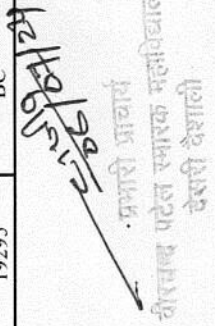 19295 BC
06/07/24
प्रभारी प्राचार्य
वीरचन्द पटेल स्मारक महाविद्याल
देसरी वैशाली